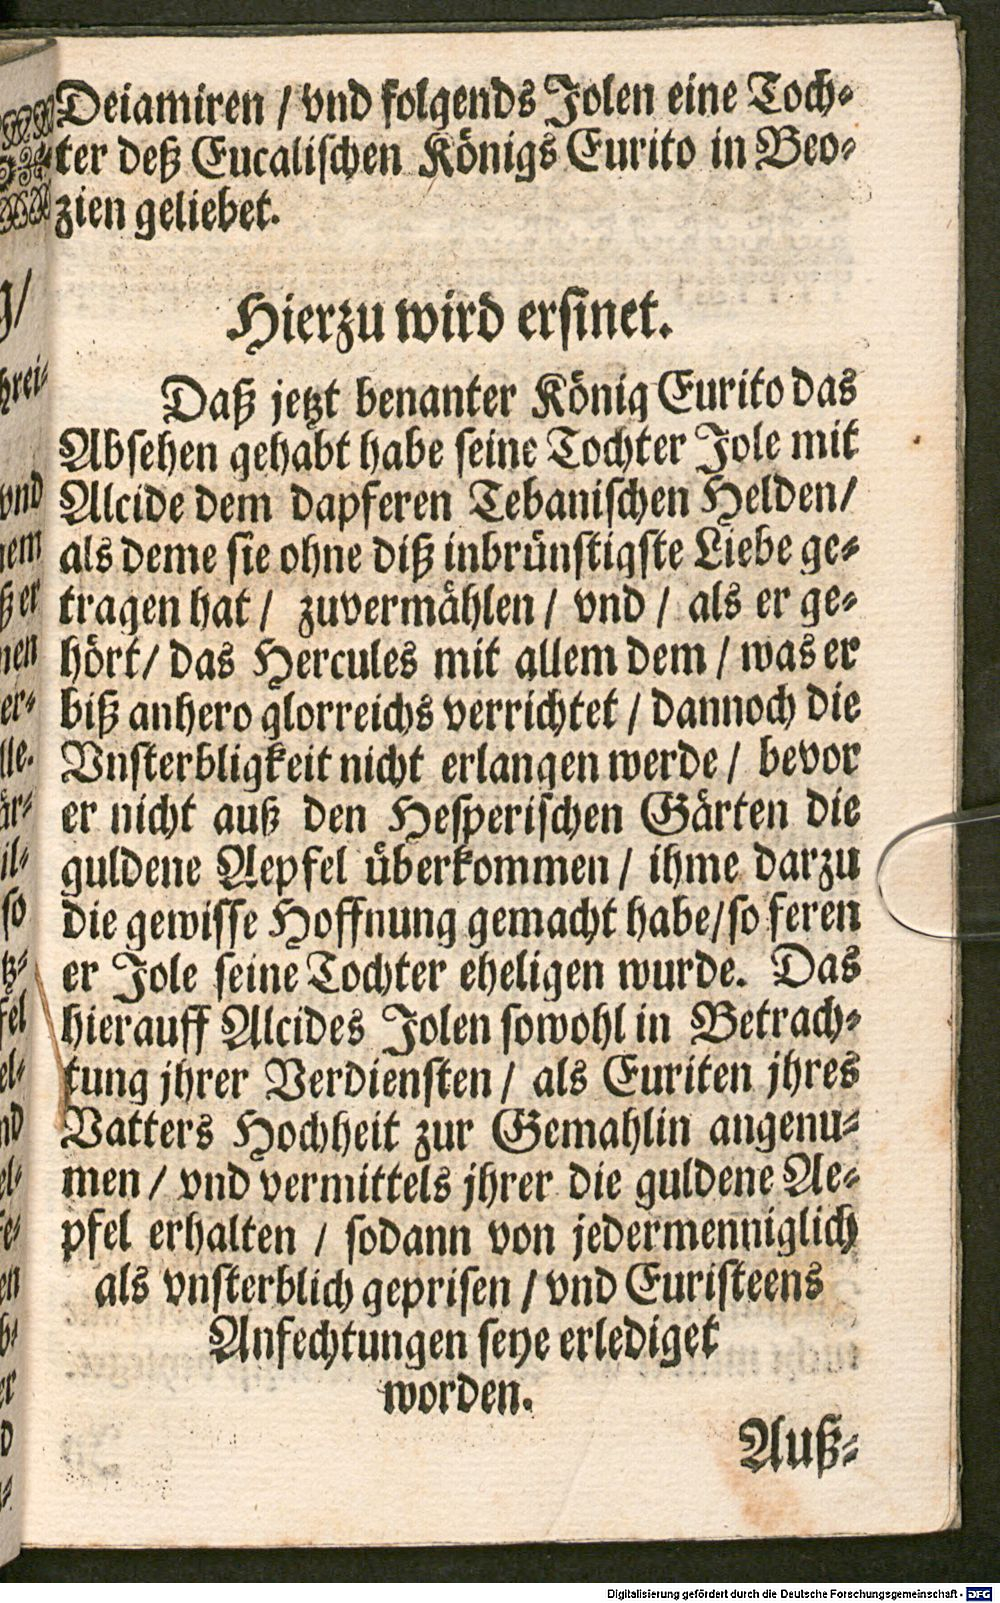 Deiamiren / vnd folgends Jolen eine Toch-
ter deß Eucalischen Königs Eurito in Beo-
zien geliebet.
Hierzu wird ersinet.
Daß jetzt benanter König Eurito das
Absehen gehabt habe seine Tochter Jole mit
Alcide dem dapferen Tebanischen Helden /
als deme sie ohne diß inbrünstigste Liebe ge-
tragen hat / zuvermählen / vnd / als er ge-
hört / das Hercules mit allem dem / was er
biß anhero glorreichs verrichtet / dannoch die
Vnsterbligkeit nicht erlangen werde / bevor
er nicht auß den Hesperischen Gärten die
guldene Aepfel überkommen / ihme darzu
die gewisse Hoffnung gemacht habe / so feren
er Jole seine Tochter eheligen wurde. Das
hierauff Alcides Jolen sowohl in Betrach-
tung jhrer Verdiensten / als Euriten jhres
Vatters Hochheit zur Gemahlin angenu-
men / vnd vermittels jhrer die guldene Ae-
pfel erhalten / sodann von jedermenniglich
als vnsterblich geprisen / vnd Euristeens
Anfechtungen seye erlediget
worden.
Auß-
Digitalisierung gefördert durch die Deutsche Forschungsgemeinschaft - DFG